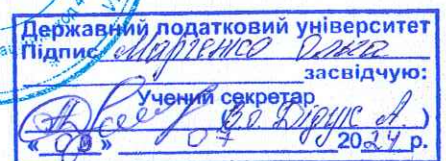 Державний податковий університет
Підпис Марченко Ольга
засвідчую:
Учений секретар
В.о. Дідук А. )
« » 07 2024 р.